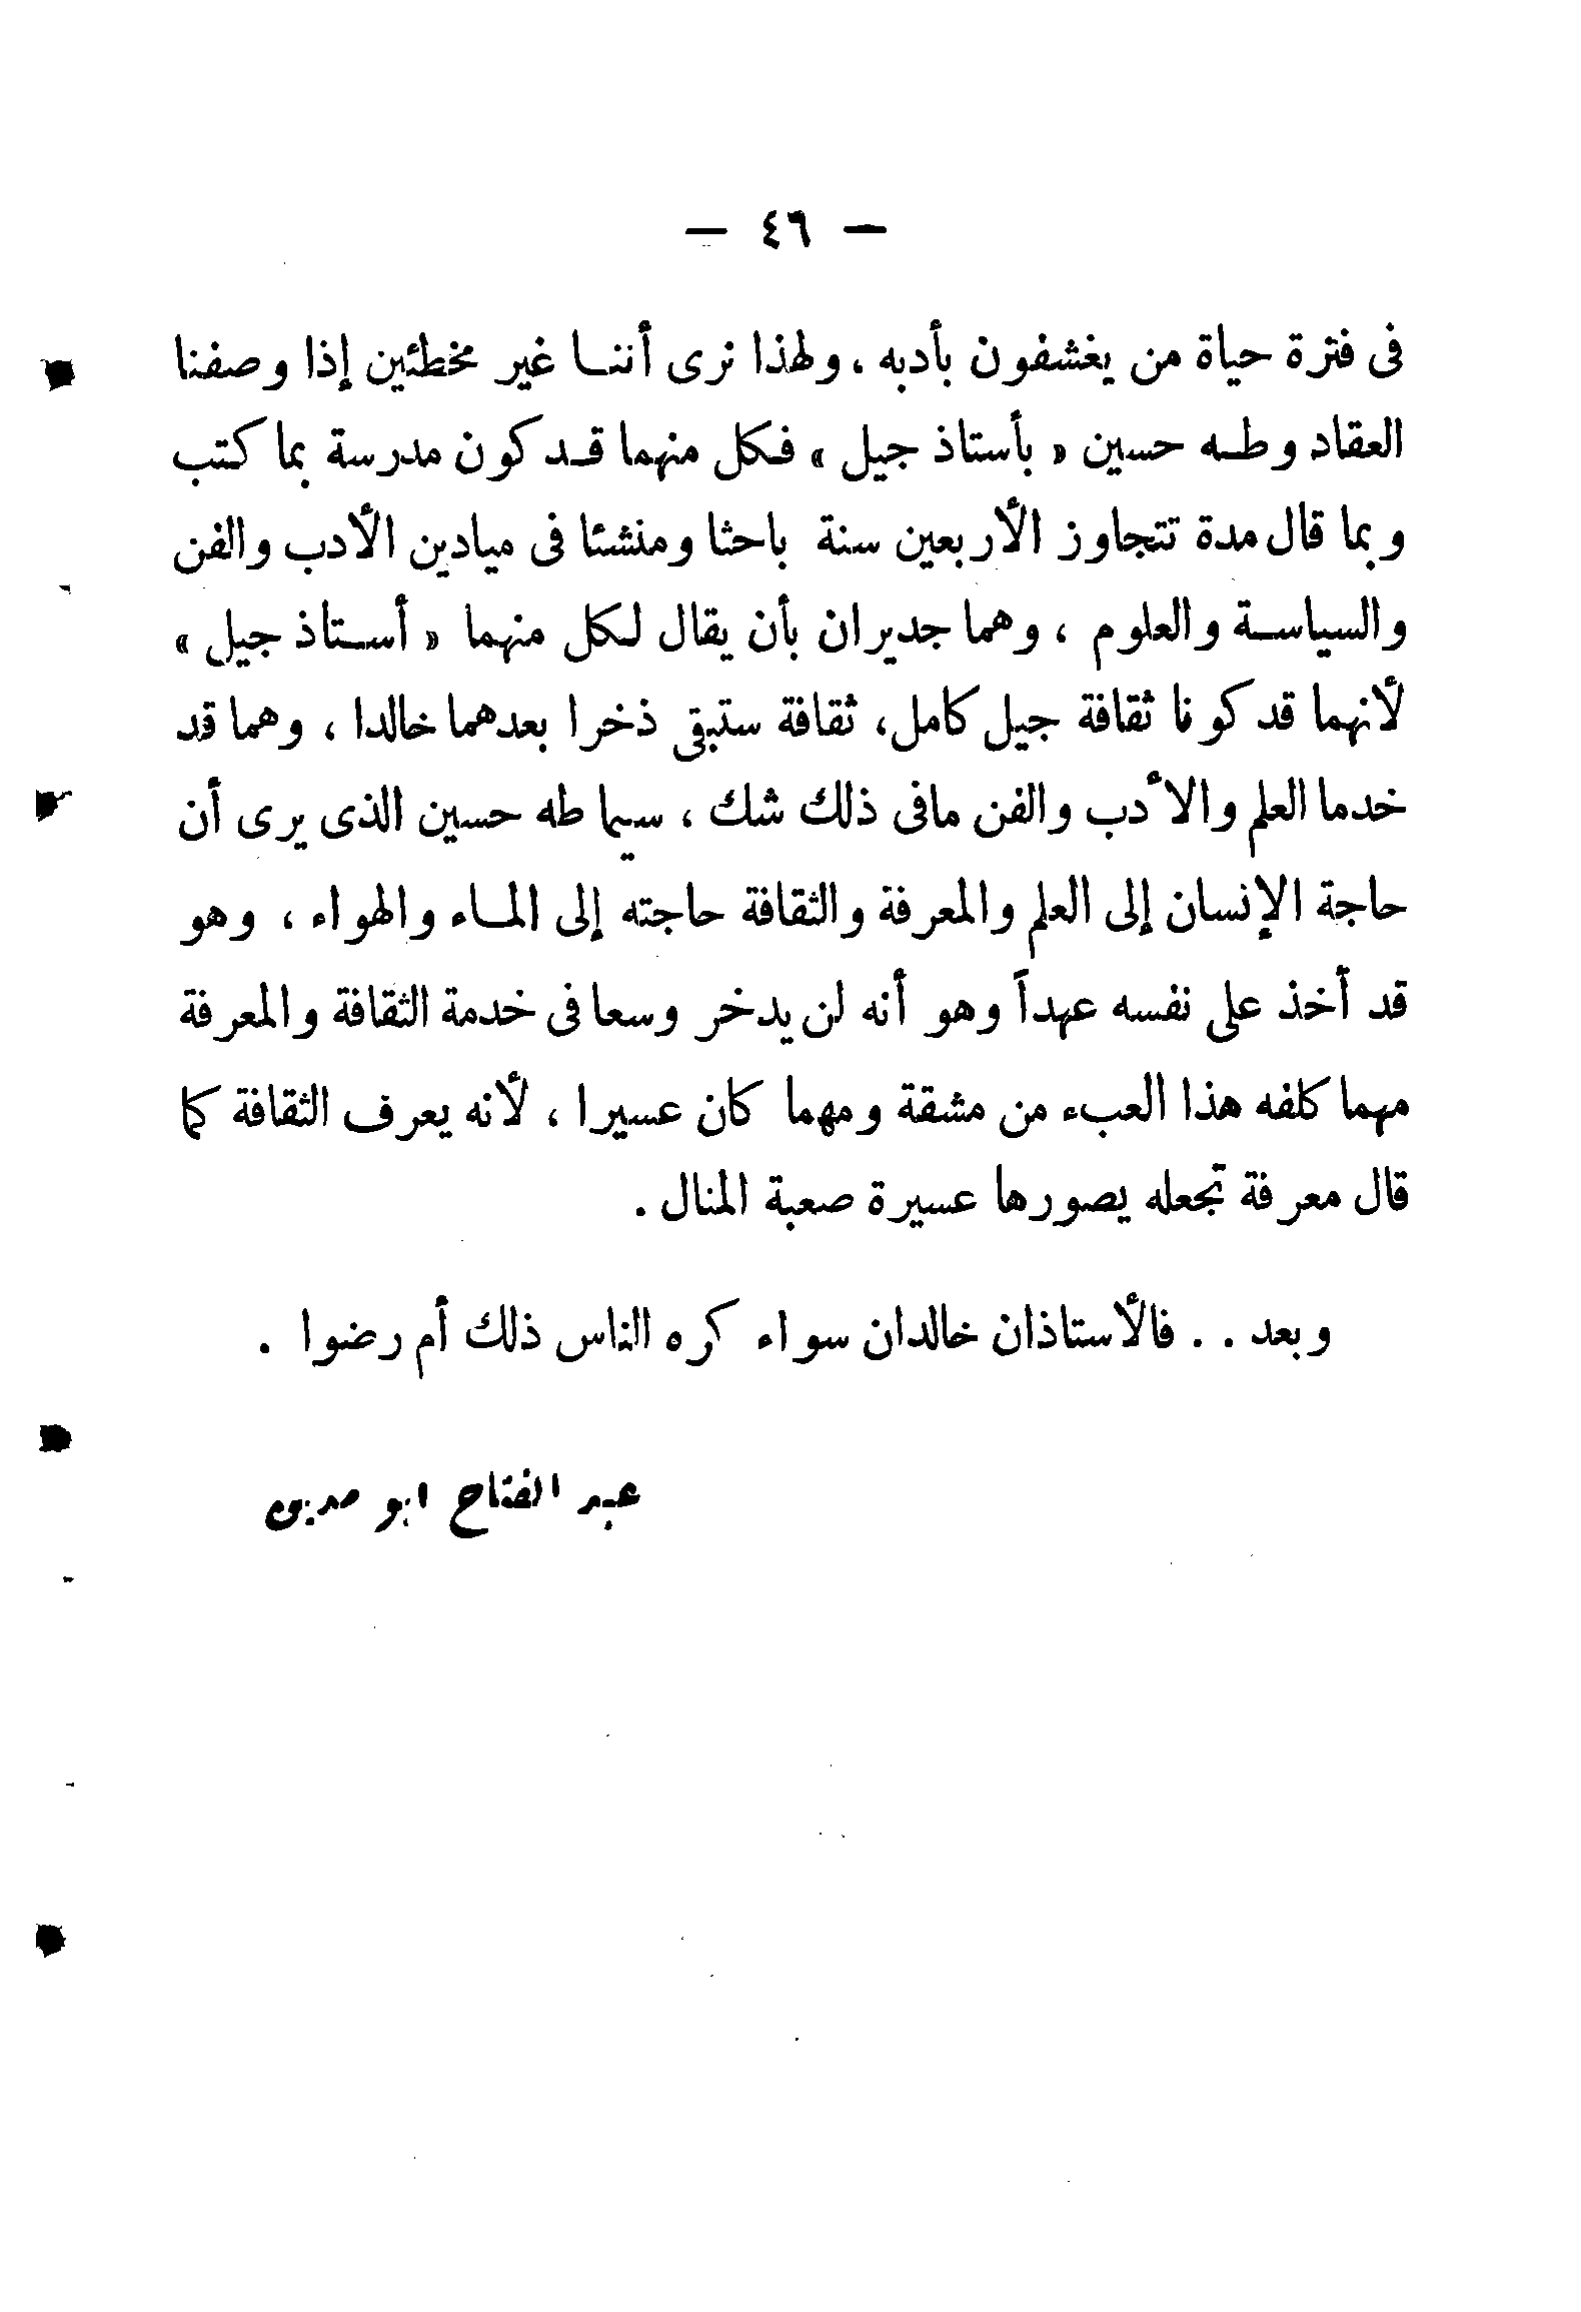 — ٤٦ —
فى فترة حياة من يغشفون بأدبه ، ولهذا نرى أننا غير مخطئين إذا وصفنا
العقاد وطه حسين « بأستاذ جيل » فكل منهما قد كون مدرسة بما كتب
وبما قال مدة تتجاوز الأربعين سنة باحثا ومنشئا فى ميادين الأدب والفن
والسياسة والعلوم ، وهما جديران بأن يقال لكل منهما « أستاذ جيل »
لأنهما قد كونا ثقافة جيل كامل ، ثقافة ستبقى ذخرا بعدهما خالدا ، وهما قد
خدما العلم والأدب والفن مافى ذلك شك ، سيما طه حسين الذى يرى أن
حاجة الإنسان إلى العلم والمعرفة والثقافة حاجته إلى الماء والهواء ، وهو
قد أخذ على نفسه عهداً وهو أنه لن يدخر وسعا فى خدمة الثقافة والمعرفة
مهما كلفه هذا العبء من مشقة ومهما كان عسيرا ، لأنه يعرف الثقافة كما
قال معرفة تجعله يصورها عسيرة صعبة المنال .
وبعد . . فالأستاذان خالدان سواء كره الناس ذلك أم رضوا .
عبد الفتاح ابو مدين